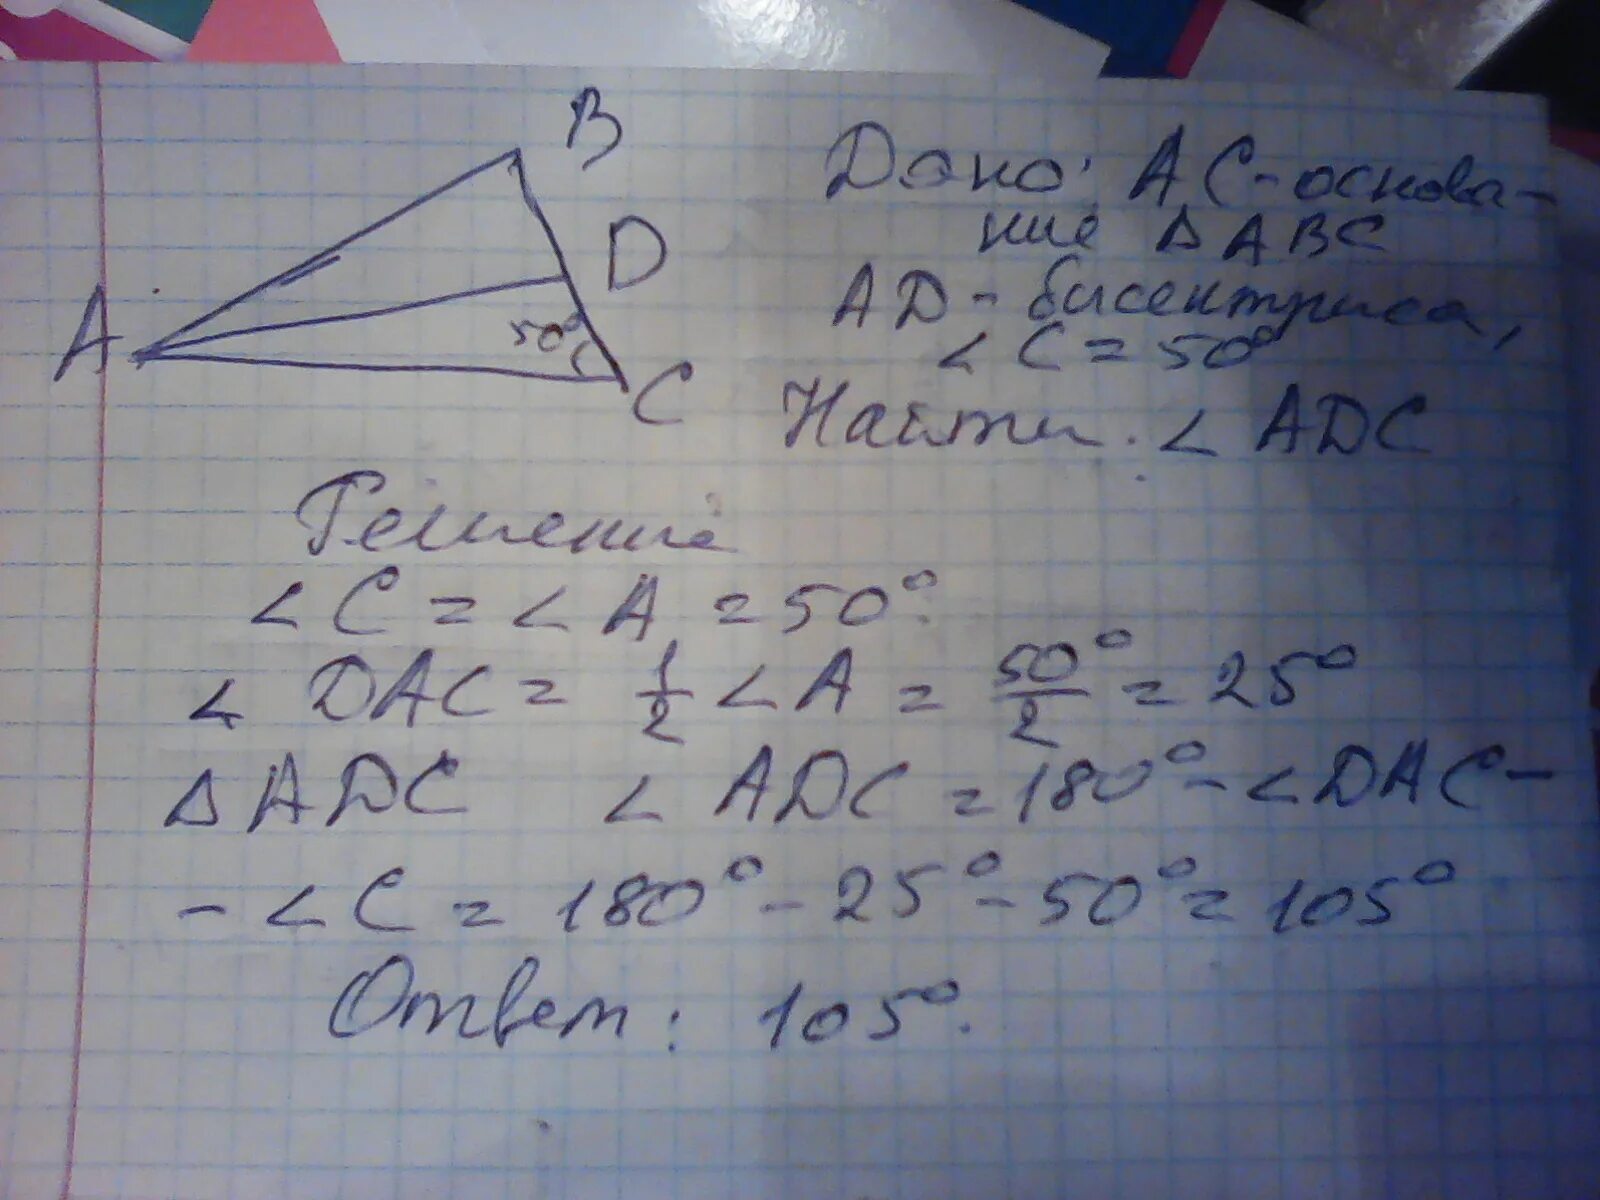 B
D
A
50°
C
Дано: AC - основа-
ние △ABC
AD - бисектриса,
∠C = 50°
Найти: ∠ADC
Решение
∠C = ∠A = 50°.
∠DAC = 1/2 ∠A = 50°/2 = 25°
△ADC ∠ADC = 180° - ∠DAC -
- ∠C = 180° - 25° - 50° = 105°
Ответ: 105°.